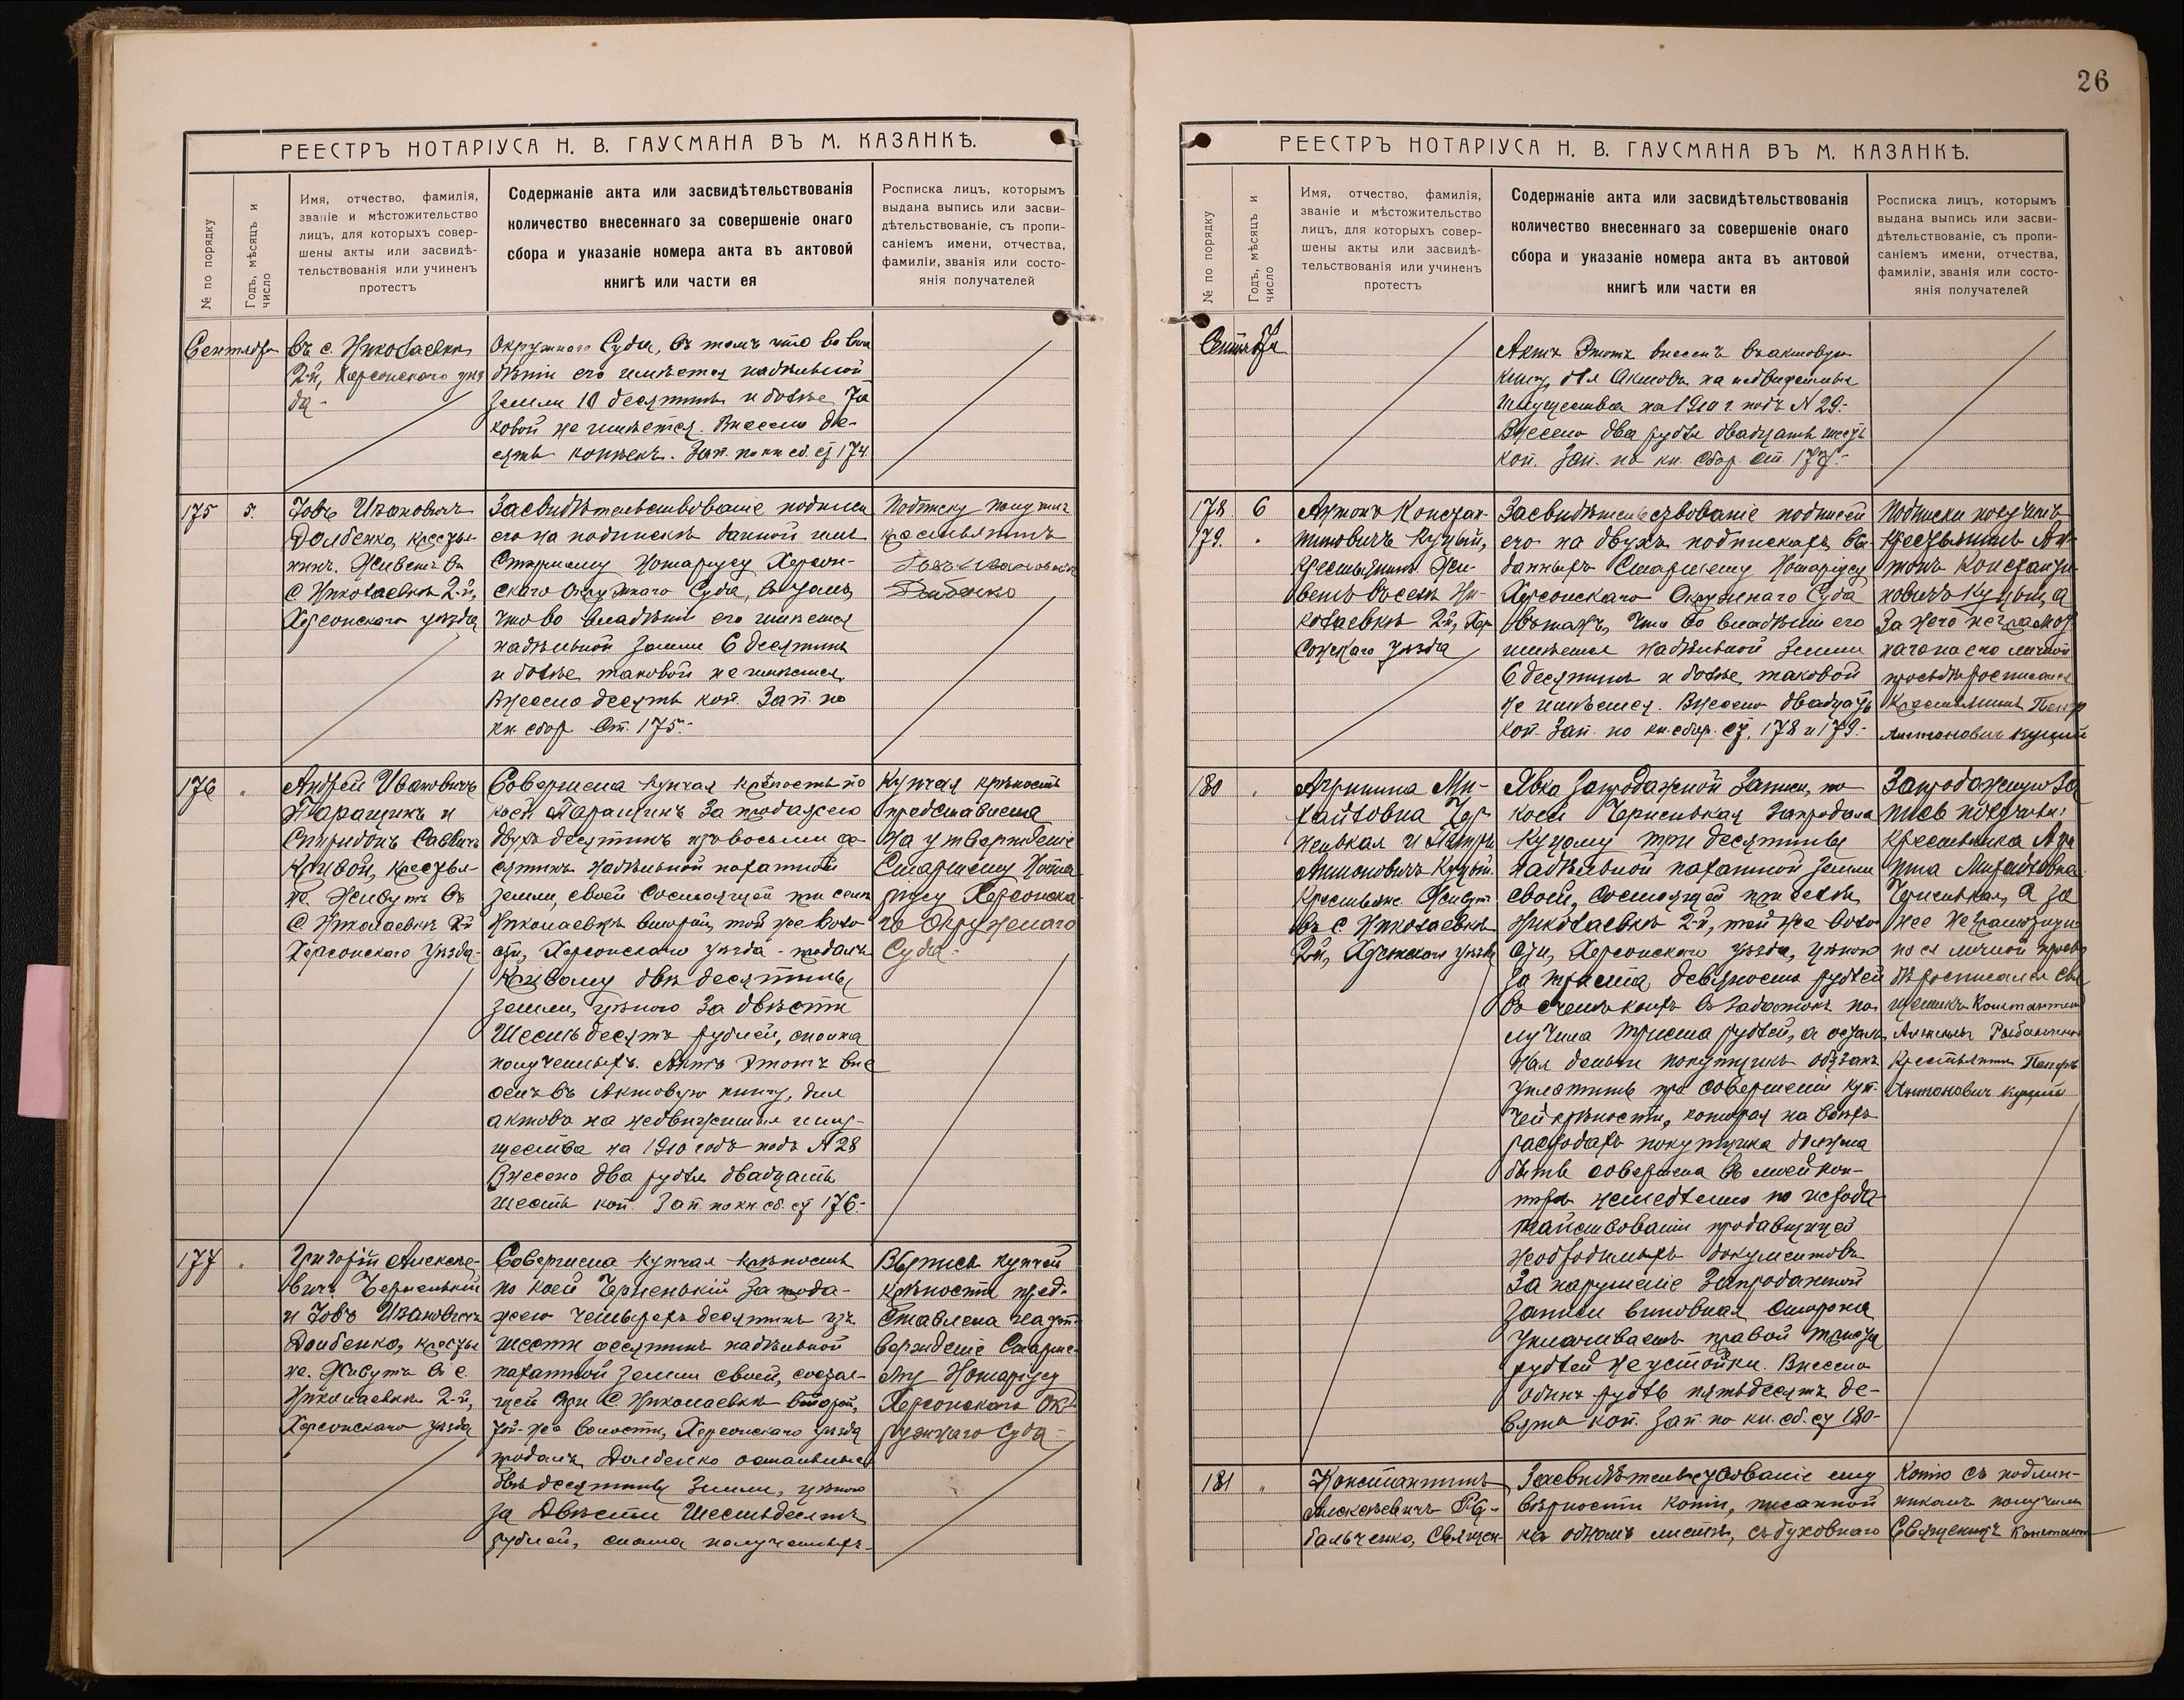 РЕЕСТРЪ НОТАРІУСА Н. В. ГАУСМАНА ВЪ М. КАЗАНКѢ.
№ по порядку
Годъ, мѣсяцъ и
число
Имя, отчество, фамилія,
званіе и мѣстожительство
лицъ, для которыхъ совер-
шены акты или засвидѣ-
тельствованія или учиненъ
протестъ
Содержаніе акта или засвидѣтельствованія
количество внесеннаго за совершеніе онаго
сбора и указаніе номера акта въ актовой
книгѣ или части ея
Росписка лицъ, которымъ
выдана выпись или засви-
дѣтельствованіе, съ пропи-
саніемъ имени, отчества,
фамиліи, званія или состо-
янія получателей
Сентября
въ с. Николаевкѣ
2-й, Херсонскаго уѣз
да-
Окружного Суда, въ томъ что во вла
дѣніи его имѣется надѣльной
земли 10 десятинъ и болѣе та
ковой не имѣется. Внесено де-
сять копѣекъ. Зап. по кн. сб. ст 174.
175
5.
Іовъ Ивановичъ
Долбенко, крестья
нинъ. Живетъ въ
с Николаевкѣ 2-й,
Херсонскаго уѣзда
Засвидѣтельствованіе подписи
его на подпискѣ данной имъ
Старшему Нотаріусу Херсон-
скаго Окружнаго Суда, въ томъ,
что во владѣніи его имѣется
надѣльной земли 6 десятинъ
и болѣе таковой не имѣется.
Внесено десять коп. Зап. по
кн. сбор Ст. 175.-
Подписку получилъ
крестьянинъ
Іовъ Ивановичъ
Долбенко
176
"
Андрей Ивановичъ
Таращикъ и
Спиридонъ Саввичъ
Кривой, крестья-
не. Живутъ въ
с Николаевкѣ 2й
Херсонскаго Уѣзда-
Совершена купчая крѣпость по
коей Таращикъ за продажею
двухъ десятинъ изъ восьми де-
сятинъ надѣльной пахатной
земли, своей состоящей при селѣ
Николаевкѣ второй, той же воло
сти, Херсонскаго уѣзда - продалъ
Кривому двѣ десятины
земли, цѣною за двѣсти
шестьдесятъ рублей, сполна
полученныхъ. Актъ этотъ вне
сенъ въ Актовую книгу, для
актовъ на недвижимыя иму-
щества на 1910 годъ подъ № 28
Внесено два рубля двадцать
шесть коп. Зап. по кн. сб. ст 176.-
Купчая крѣпость
представлена
на утвержденіе
Старшему Нота
ріусу Херсонска
го Окружнаго
Суда-
177
"
Григорій Алексѣе-
вичъ Черненькій
и Іовъ Ивановичъ
Долбенко, крестья
не. Живутъ въ с.
Николаевкѣ 2-й,
Херсонскаго уѣзда
Совершена купчая крѣпость
по коей Черненькій за прода-
жею четырехъ десятинъ изъ
шести десятинъ надѣльной
пахатной земли своей, состоя-
щей при с Николаевкѣ второй,
той-же волости, Херсонскаго уѣзда
продалъ Долбенко остальныя
двѣ десятины земли, цѣною
за Двѣсти Шестьдесятъ
рублей, сполна полученныхъ.
Выпись купчей
крѣпости пред-
ставлена на ут-
вержденіе Старше-
му Нотаріусу
Херсонскаго Ок-
ружнаго Суда-
26
РЕЕСТРЪ НОТАРІУСА Н. В. ГАУСМАНА ВЪ М. КАЗАНКѢ.
№ по порядку
Годъ, мѣсяцъ и
число
Имя, отчество, фамилія,
званіе и мѣстожительство
лицъ, для которыхъ совер-
шены акты или засвидѣ-
тельствованія или учиненъ
протестъ
Содержаніе акта или засвидѣтельствованія
количество внесеннаго за совершеніе онаго
сбора и указаніе номера акта въ актовой
книгѣ или части ея
Росписка лицъ, которымъ
выдана выпись или засви-
дѣтельствованіе, съ пропи-
саніемъ имени, отчества,
фамиліи, званія или состо-
янія получателей
Сентября
Актъ Этотъ внесенъ въ актовую
книгу, для Актовъ на недвижимыя
имущества на 1910 г. подъ № 29.-
Внесено два рубля двадцать шесть
коп. Зап. по кн. сбор. ст. 177.-
178.
179.
6
"
Антонъ Констан-
тиновичъ Куцый,
крестьянинъ. Жи-
ветъ въ селѣ Ни-
колаевкѣ 2й, Хер
сонскаго уѣзда
Засвидѣтельствованіе подписей
его на двухъ подпискахъ, вы-
данныхъ Старшему Нотаріусу
Херсонскаго Окружнаго Суда
въ томъ, что во владѣніи его
имѣется надѣльной земли
6 десятинъ и болѣе таковой
не имѣется. Внесено двадцать
коп. Зап. по кн. сбор. ст. 178 и 179.-
Подписки получилъ
крестьянинъ Ан-
тонъ Константи-
новичъ Куцый, а
за него неграмот
наго по его личной
просьбѣ росписался
Крестьянинъ Петръ
Антоновичъ Куцый
180
"
Агрипина Ми-
хайловна Чер-
ненькая и Петръ
Антоновичъ Куцый.
Крестьяне. Живутъ
въ с Николаевкѣ
2й, Херсонскаго уѣзда
Явка запродажной записи, по
коей Черненькая запродала
Куцому три десятины
надѣльной пахатной земли
своей, состоящей при селѣ,
Николаевкѣ 2-й, той же воло
сти, Херсонскаго уѣзда, цѣною
за триста девяносто рублей
въ счетъ коихъ въ задатокъ по-
лучила триста рублей, а осталь
ныя деньги покупщикъ обязанъ
уплатить при совершеніи куп-
чей крѣпости, которая на всѣхъ
расходахъ покупщика должна
быть совершена въ моей кон-
торѣ немедленно по исхода-
тайствованіи продавщицей
необходимыхъ документовъ
За нарушеніе Запродажной
записи виновная Сторона
уплачиваетъ правой триста
рублей неустойки. Внесено
одинъ рубль пятьдесятъ де-
вять коп. Зап по кн. сб. ст 180-
Запродажную За
пись получили:
крестьянка Агри
пина Михайловна
Черненькая, а за
нее неграмотную
по ея личной прось
бѣ росписался Свя
щенникъ Константинъ
Крестьянинъ Петръ
Антоновичъ Куцый
181
"
Константинъ
Алексѣевичъ Ры-
бальченко, Священ-
Засвидѣтельствованіе ему
вѣрности копіи, писанной
на одномъ листѣ, съ духовнаго
Копію съ подлин-
никомъ получилъ
Священникъ Константи